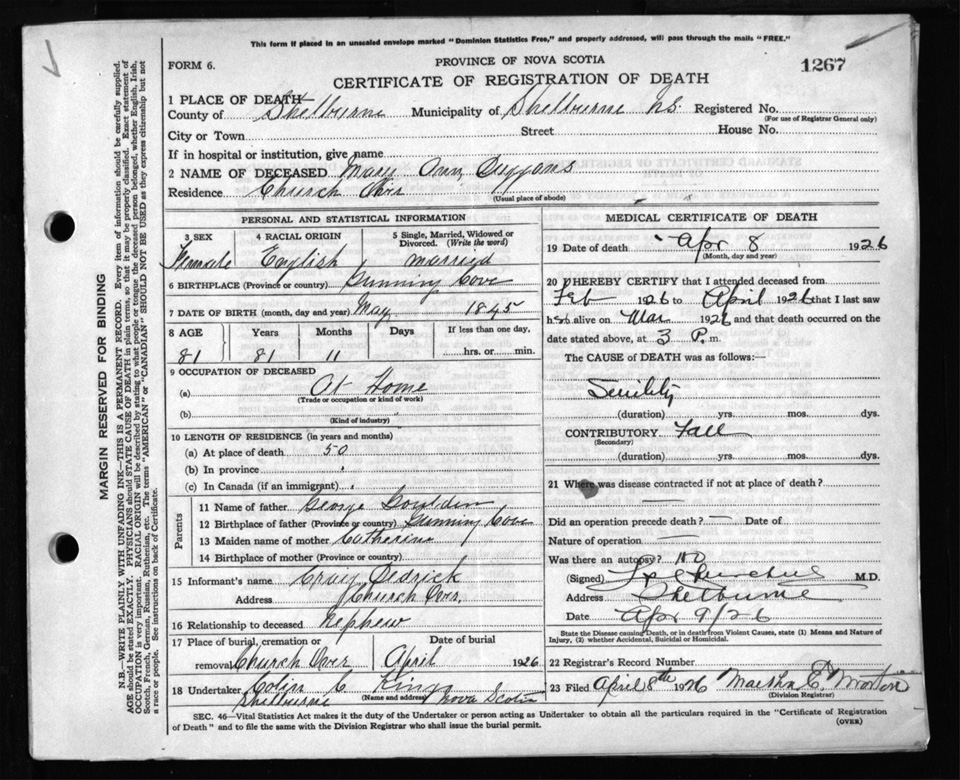 This form if placed in an unsealed envelope marked "Dominion Statistics Free," and properly addressed, will pass through the mails "FREE."
FORM 6.
PROVINCE OF NOVA SCOTIA
1267
CERTIFICATE OF REGISTRATION OF DEATH
1 PLACE OF DEATH
County of Shelburne Municipality of Shelburne N.S. Registered No.
(For use of Registrar General only)
City or Town Street House No.
If in hospital or institution, give name
2 NAME OF DECEASED Mary Ann
Residence Church Over
(Usual place of abode)
PERSONAL AND STATISTICAL INFORMATION
3 SEX 4 RACIAL ORIGIN 5 Single, Married, Widowed or Divorced. (Write the word)
Female English married
6 BIRTHPLACE (Province or country) Gunning Cove
7 DATE OF BIRTH (month, day and year) May 1845
8 AGE Years Months Days If less than one day,
81 81 11 hrs. or min.
9 OCCUPATION OF DECEASED
(a) At Home
(Trade or occupation or kind of work)
(b)
(Kind of industry)
10 LENGTH OF RESIDENCE (in years and months)
(a) At place of death 50
(b) In province
(c) In Canada (if an immigrant)
Parents
11 Name of father George
12 Birthplace of father (Province or country) Gunning Cove
13 Maiden name of mother Catherine
14 Birthplace of mother (Province or country)
15 Informant's name Dedrick
Address Church Over.
16 Relationship to deceased nephew
17 Place of burial, cremation or Date of burial
removal Church Over April 1926
18 Undertaker Colin C. King
(Name and address)
Shelburne Nova Scotia
MEDICAL CERTIFICATE OF DEATH
19 Date of death Apr 8 1926
(Month, day and year)
20 I HEREBY CERTIFY that I attended deceased from
Feb 1926 to April 1926 that I last saw
her alive on Mar 1926 and that death occurred on the
date stated above, at 3 P. m.
The CAUSE of DEATH was as follows:—
Senility
(duration) yrs. mos. dys.
CONTRIBUTORY Fall
(Secondary)
(duration) yrs. mos. dys.
21 Where was disease contracted if not at place of death?
—
Did an operation precede death? — Date of
Nature of operation —
Was there an autopsy? No
(Signed) Churchill M.D.
Address Shelburne
Date Apr 9/26
State the Disease causing Death, or in death from Violent Causes, state (1) Means and Nature of
Injury, (2) whether Accidental, Suicidal or Homicidal.
22 Registrar's Record Number
23 Filed April 8th 1926 Martha E. Morton
(Division Registrar)
SEC. 46—Vital Statistics Act makes it the duty of the Undertaker or person acting as Undertaker to obtain all the particulars required in the "Certificate of Registration
of Death" and to file the same with the Division Registrar who shall issue the burial permit. (OVER)
MARGIN RESERVED FOR BINDING
N.B.—WRITE PLAINLY WITH UNFADING INK—THIS IS A PERMANENT RECORD. Every item of information should be carefully supplied.
AGE should be stated EXACTLY. PHYSICIANS should STATE CAUSE OF DEATH in plain terms, so that it may be properly classified. Exact statement of
OCCUPATION is very important. RACIAL ORIGIN will be described by stating to what people or tongue the deceased person belonged, whether English, Irish,
Scotch, French, German, Russian, Ruthenian, etc. The terms "AMERICAN" or "CANADIAN" SHOULD NOT BE USED as they express citizenship but not
a race or people. See instructions on back of Certificate.